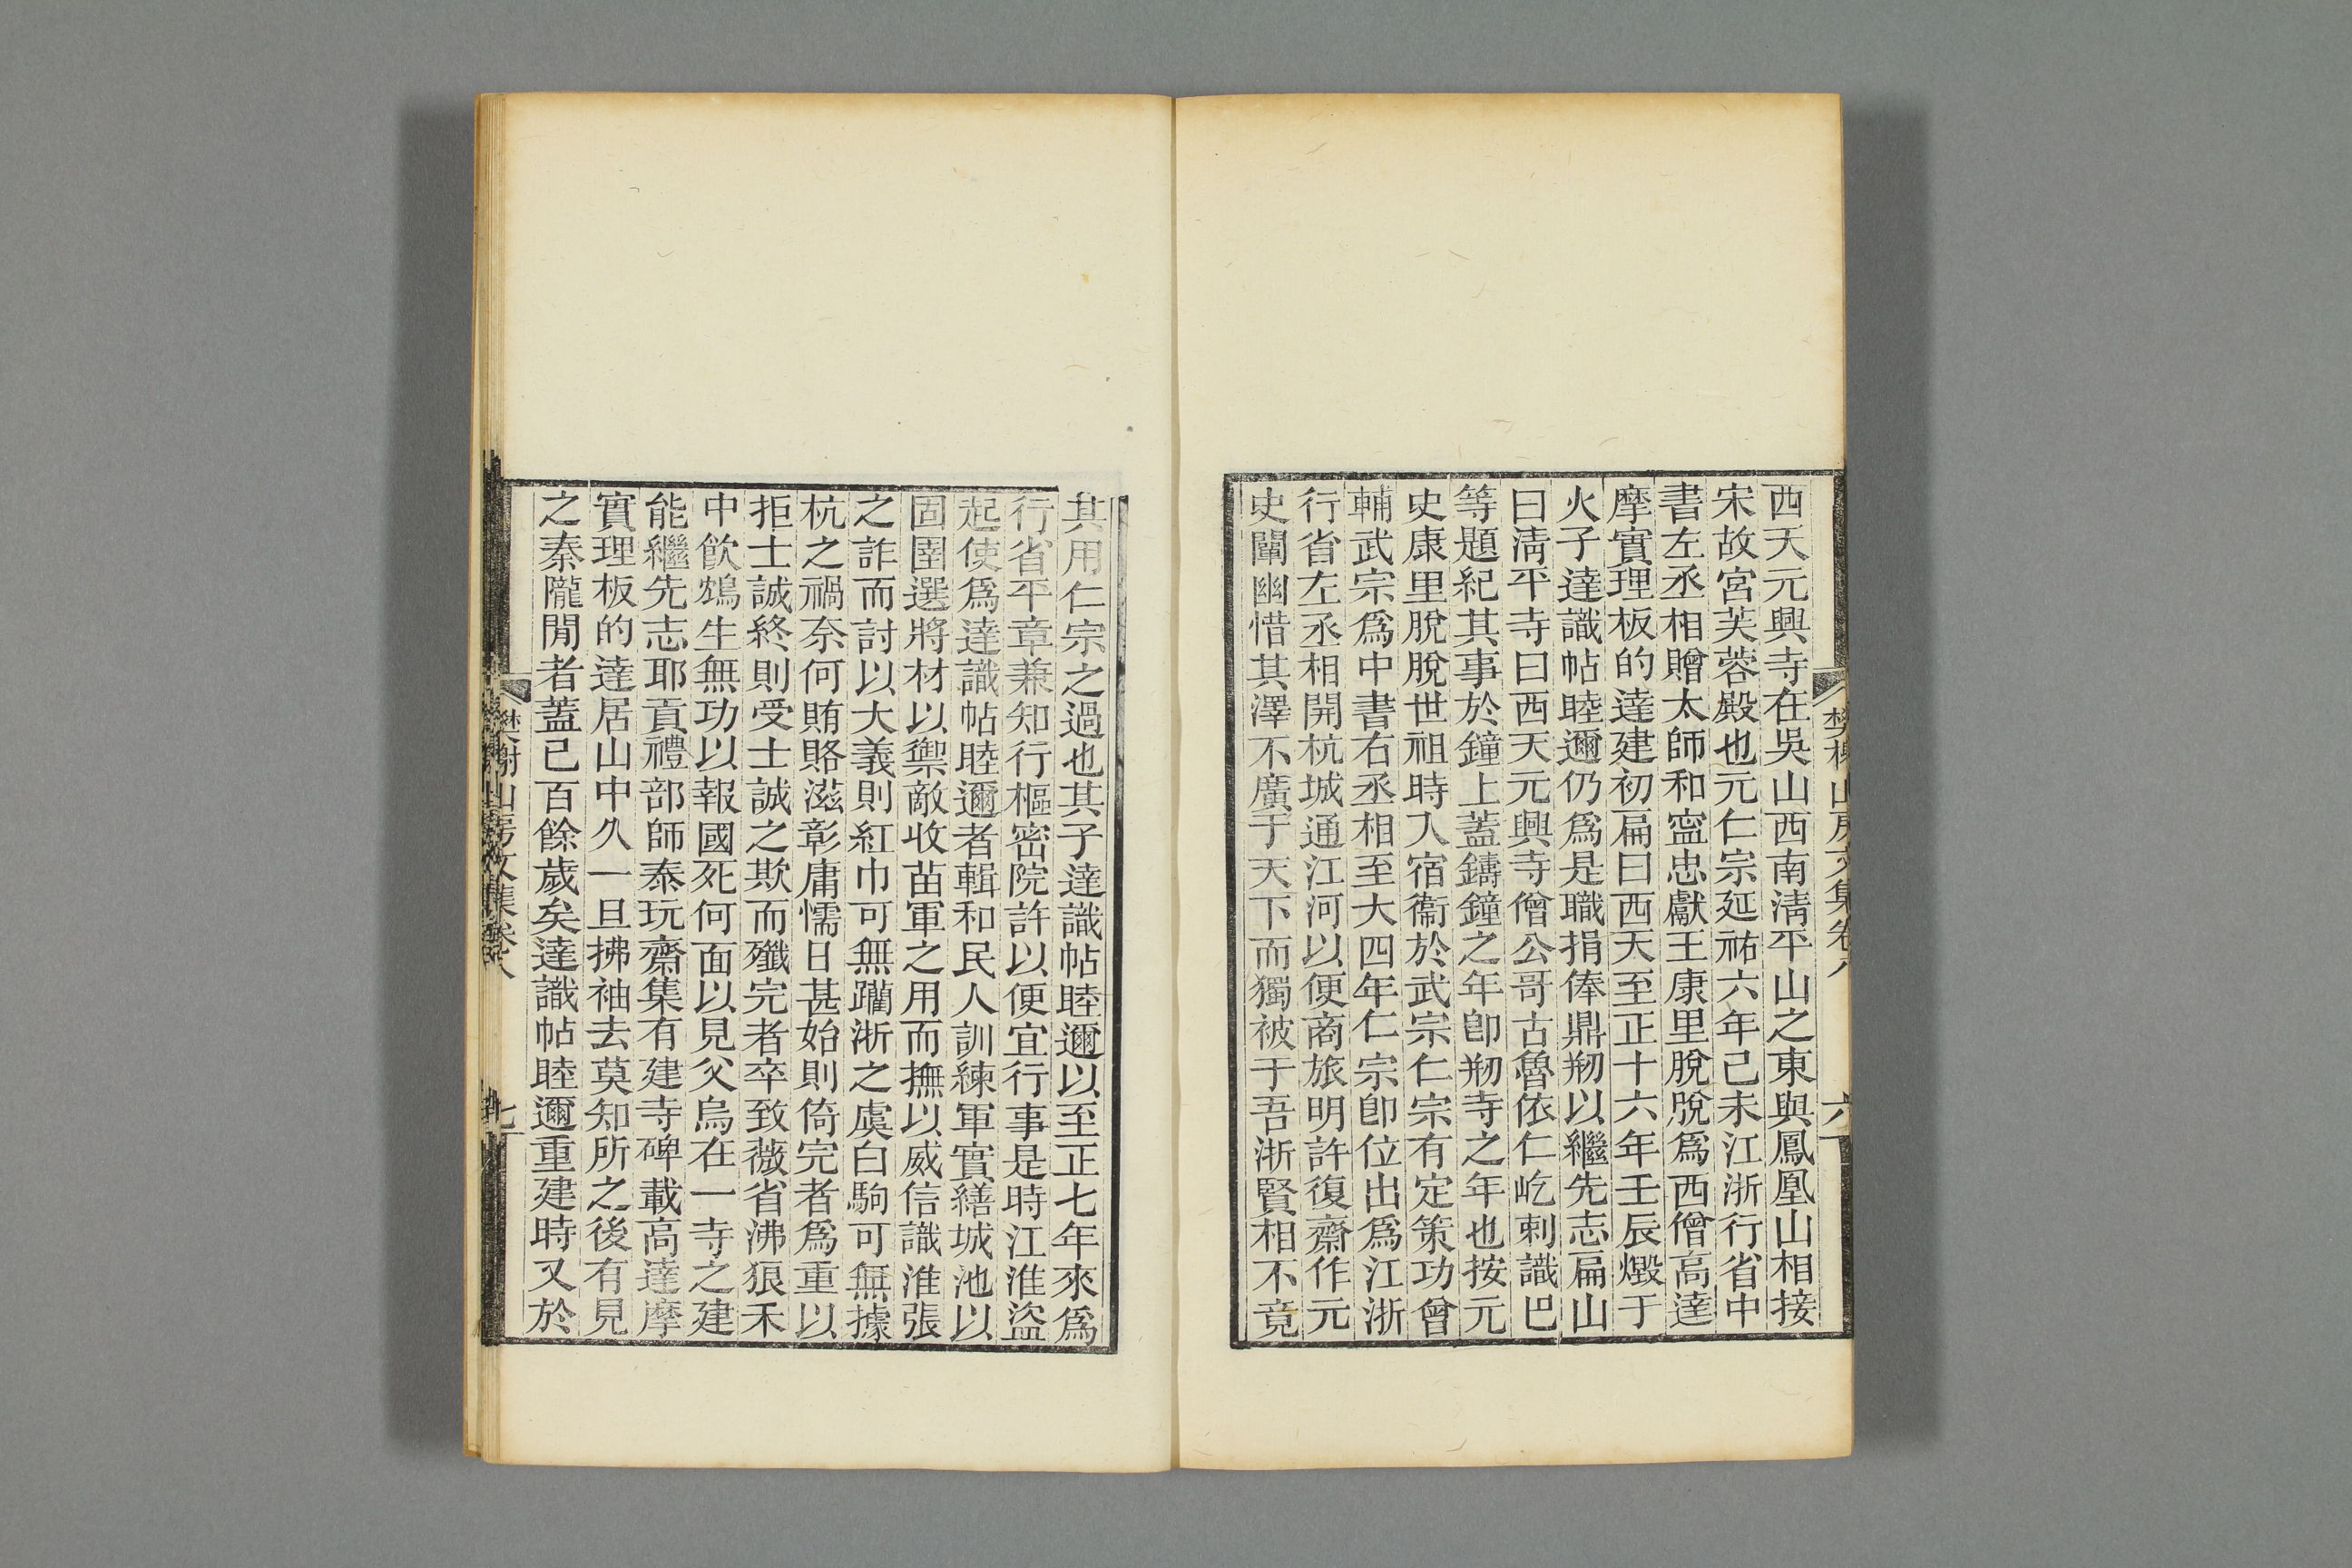 西天元興寺在吳山西南淸平山之東與鳳凰山相接
宋故宮芙蓉殿也元仁宗延祐六年己未江浙行省中
書左丞相贈太師和寍忠獻王康里脫脫爲西僧高達
摩實理板的達建初扁曰西天至正十六年壬辰燬于
火子達識帖睦邇仍爲是職捐俸鼎剏以繼先志扁山
曰淸平寺曰西天元興寺僧公哥古魯依仁屹剌識巴
等題紀其事於鐘上蓋鑄鐘之年卽剏寺之年也按元
史康里脫脫世祖時入宿衞於武宗仁宗有定策功曾
輔武宗爲中書右丞相至大四年仁宗卽位出爲江浙
行省左丞相開杭城通江河以便商旅明許復齋作元
史闡幽惜其澤不廣于天下而獨被于吾浙賢相不竟
樊榭山房文集卷八
六
其用仁宗之過也其子達識帖睦邇以至正七年來爲
行省平章兼知行樞密院許以便宜行事是時江淮盜
起使爲達識帖睦邇者輯和民人訓練軍實繕城池以
固圉選將材以禦敵收苗軍之用而撫以威信識淮張
之詐而討以大義則紅巾可無躪浙之虞白駒可無據
杭之禍奈何賄賂滋彰庸懦日甚始則倚完者爲重以
拒士誠終則受士誠之欺而殲完者卒致薇省沸狼禾
中飮鴆生無功以報國死何面以見父烏在一寺之建
能繼先志耶貢禮部師泰玩齋集有建寺碑載高達摩
實理板的達居山中久一旦拂袖去莫知所之後有見
之秦隴閒者蓋已百餘歲矣達識帖睦邇重建時又於
樊榭山房文集卷八
七